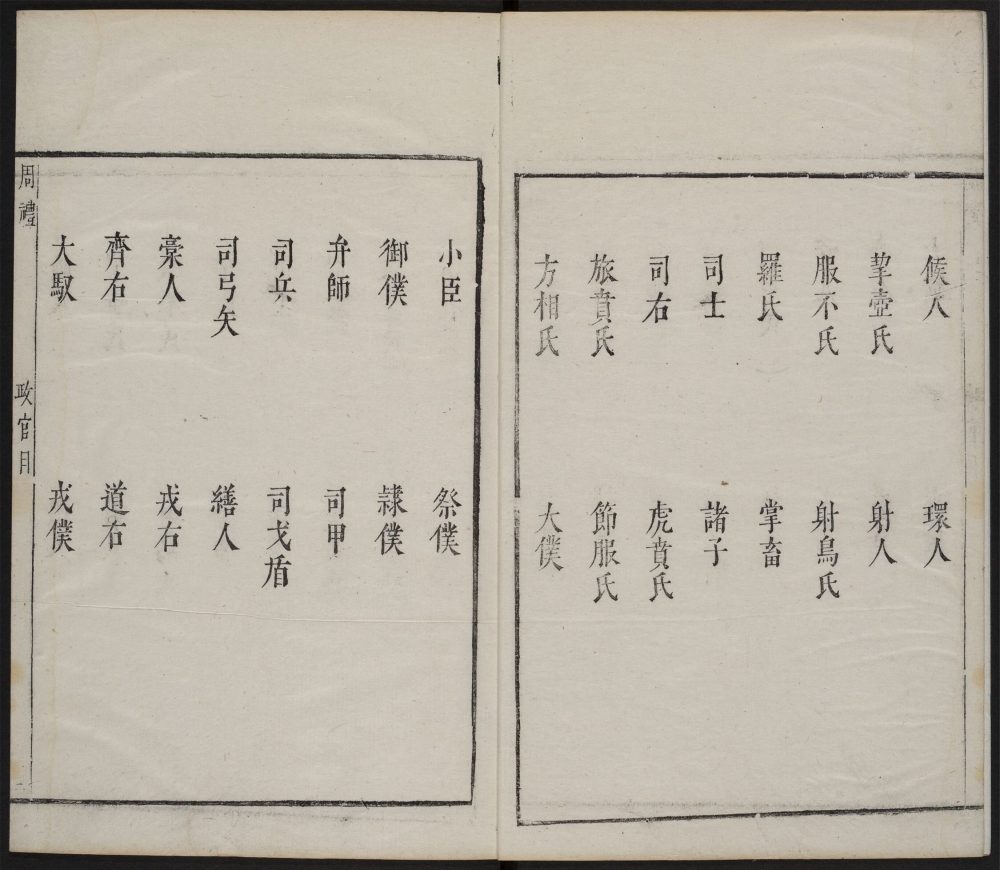 候人　環人
挈壺氏　射人
服不氏　射鳥氏
羅氏　掌畜
司士　諸子
司右　虎賁氏
旅賁氏　節服氏
方相氏　大僕
小臣　祭僕
御僕　隷僕
弁師　司甲
司兵　司戈盾
司弓矢　繕人
槀人　戎右
齊右　道右
大馭　戎僕
周禮　政官目